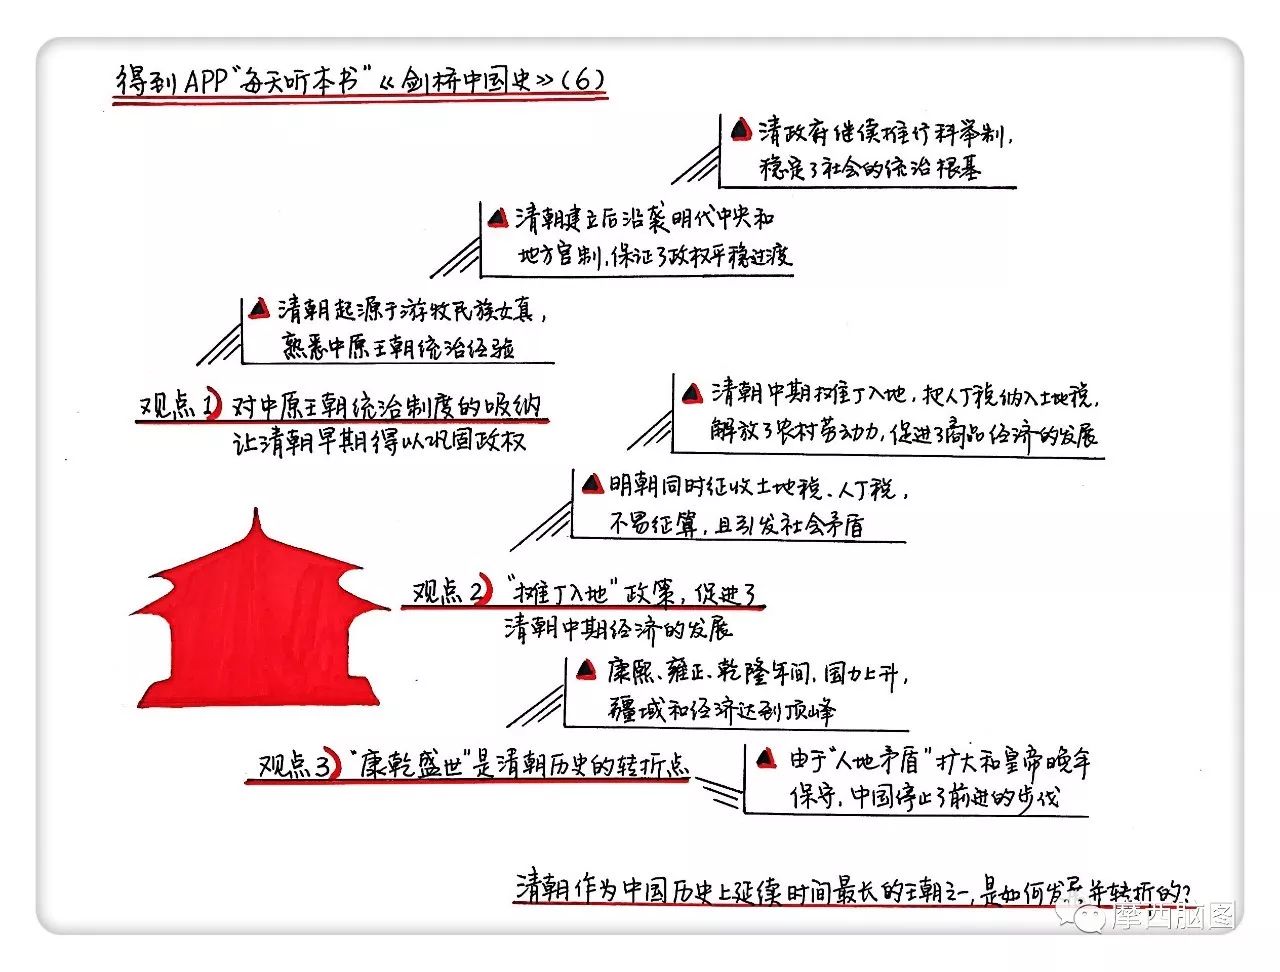 得到APP"每天听本书"《剑桥中国史》(6)
清政府继续推行科举制,
稳定了社会的统治根基
清朝建立后沿袭明代中央和
地方官制,保证了政权平稳过渡
清朝起源于游牧民族女真,
熟悉中原王朝统治经验
观点1)对中原王朝统治制度的吸纳
让清朝早期得以巩固政权
清朝中期摊丁入地,把人丁税纳入土地税,
解放了农村劳动力,促进了商品经济的发展
明朝同时征收土地税、人丁税,
不易征算,且引发社会矛盾
观点2)"摊丁入地"政策,促进了
清朝中期经济的发展
康熙、雍正、乾隆年间,国力上升,
疆域和经济达到顶峰
观点3)"康乾盛世"是清朝历史的转折点
由于"人地矛盾"扩大和皇帝晚年
保守,中国停止了前进的步伐
清朝作为中国历史上延续时间最长的王朝之一,是如何发展并转折的?
摩西脑图